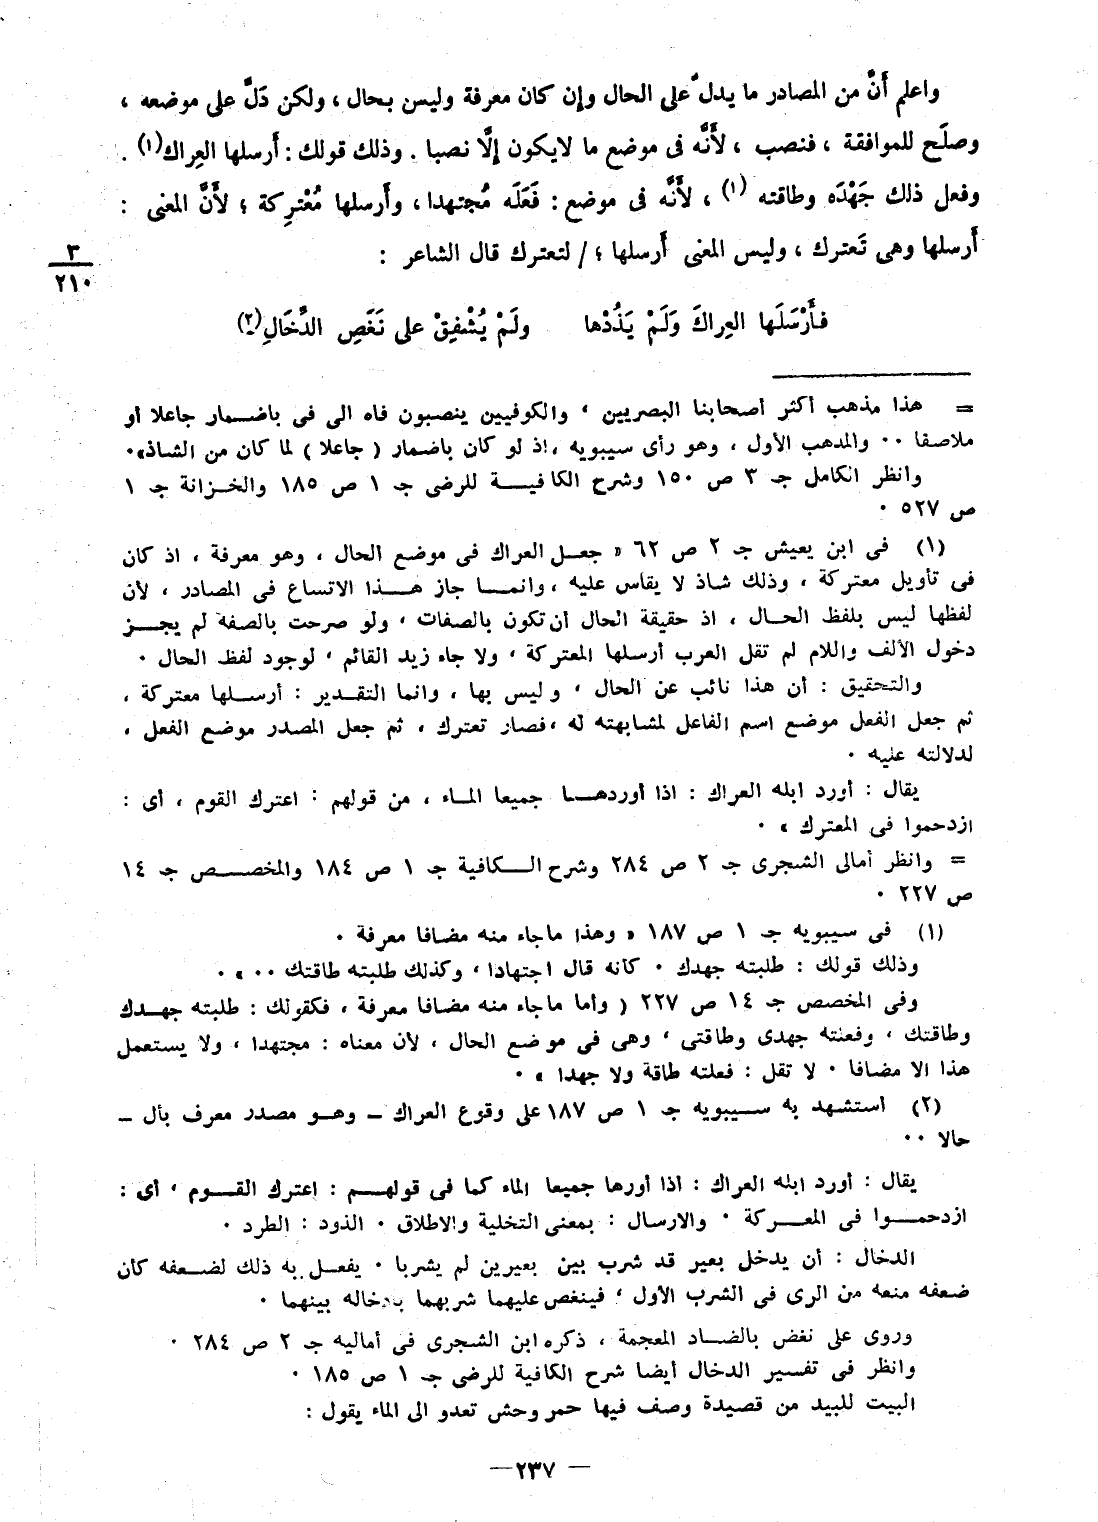 واعلم أَنَّ من المصادر ما يدلّ على الحال وإن كان معرفة وليس بحال ، ولكن دَلَّ على موضعه ،
وصلَح للموافقة ، فنصب ، لأَنَّه فى موضع ما لايكون إلَّا نصبا . وذلك قولك : أَرسلها العِراك(١) .
وفعل ذلك جَهْدَه وطاقته (١) ، لأَنَّه فى موضع : فَعَلَه مُجتهدا ، وأَرسلها مُعْتركة ؛ لأَنَّ المعنى :
أَرسلها وهى تَعترك ، وليس المعنى أَرسلها ؛ / لتعترك قال الشاعر :
٣
٢١٠
فأَرْسَلَها العِراكَ وَلَمْ يَذُدْها ولَمْ يُشْفِقْ على نَغَصِ الدِّخَالِ(٢)
= هذا مذهب أكثر أصحابنا البصريين ، والكوفيين ينصبون فاه الى فى باضمار جاعلا أو
ملاصقا ٠٠ والمدهب الأول ، وهو رأى سيبويه ، اذ لو كان باضمار ( جاعلا ) لما كان من الشاذ» ٠
وانظر الكامل جـ ٣ ص ١٥٠ وشرح الكافية للرضى جـ ١ ص ١٨٥ والخزانة جـ ١
ص ٥٢٧ ٠
(١) فى ابن يعيش جـ ٢ ص ٦٢ « جعل العراك فى موضع الحال ، وهو معرفة ، اذ كان
فى تأويل معتركة ، وذلك شاذ لا يقاس عليه ، وانما جاز هذا الاتساع فى المصادر ، لأن
لفظها ليس بلفظ الحال ، اذ حقيقة الحال أن تكون بالصفات ، ولو صرحت بالصفة لم يجز
دخول الألف واللام لم تقل العرب أرسلها المعتركة ، ولا جاء زيد القائم ، لوجود لفظ الحال ٠
والتحقيق : أن هذا نائب عن الحال ، وليس بها ، وانما التقدير : أرسلها معتركة ،
ثم جعل الفعل موضع اسم الفاعل لمشابهته له ، فصار تعترك ، ثم جعل المصدر موضع الفعل ،
لدلالته عليه ٠
يقال : أورد ابله العراك : اذا أوردها جميعا الماء ، من قولهم : اعترك القوم ، أى :
ازدحموا فى المعترك » ٠
= وانظر أمالى الشجرى جـ ٢ ص ٢٨٤ وشرح الكافية جـ ١ ص ١٨٤ والمخصص جـ ١٤
ص ٢٢٧ ٠
(١) فى سيبويه جـ ١ ص ١٨٧ « وهذا ماجاء منه مضافا معرفة ٠
وذلك قولك : طلبته جهدك ٠ كانه قال اجتهادا ، وكذلك طلبته طاقتك ٠٠ » ٠
وفى المخصص جـ ١٤ ص ٢٢٧ ( وأما ماجاء منه مضافا معرفة ، فكقولك : طلبته جهدك
وطاقتك ، وفعلته جهدى وطاقتى ، وهى فى موضع الحال ، لأن معناه : مجتهدا ، ولا يستعمل
هذا الا مضافا ٠ لا تقل : فعلته طاقة ولا جهدا » ٠
(٢) استشهد به سيبويه جـ ١ ص ١٨٧ على وقوع العراك – وهو مصدر معرف بأل –
حالا ٠٠
يقال : أورد ابله العراك : اذا أورها جميعا الماء كما فى قولهم : اعترك القوم ، أى :
ازدحموا فى المعركة ٠ والارسال : بمعنى التخلية والاطلاق ٠ الذود : الطرد ٠
الدخال : أن يدخل بعير قد شرب بين بعيرين لم يشربا ٠ يفعل به ذلك لضعفه كأن
ضعفه منعه من الرى فى الشرب الأول ، فينغص عليهما شربهما بادخاله بينهما ٠
وروى على نغض بالضاد المعجمة ، ذكره ابن الشجرى فى أماليه جـ ٢ ص ٢٨٤ ٠
وانظر فى تفسير الدخال أيضا شرح الكافية للرضى جـ ١ ص ١٨٥ ٠
البيت للبيد من قصيدة وصف فيها حمر وحش تعدو الى الماء يقول :
— ٢٣٧ —